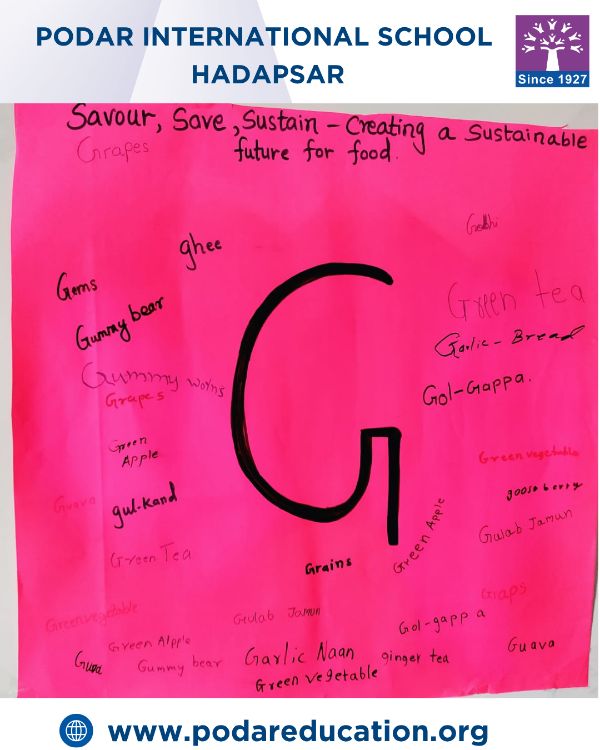 PODAR INTERNATIONAL SCHOOL
HADAPSAR
Since 1927
Savour, Save, Sustain - Creating a Sustainable
future for food.
Grapes
Gobhi
ghee
Gems
Green tea
Gummy bear
Garlic - Bread
Gummy worms
Grapes
Gol-Gappa.
Green
Apple
Green vegetable
gooseberry
Guava
gul-kand
Gulab Jamun
Green Apple
Green Tea
Grains
Graps
Greenvegetable
Gulab Jamun
Gol-gappa
Green Alpple
Guava
Gummy bear
Garlic Naan
ginger tea
Green vegetable
www.podareducation.org